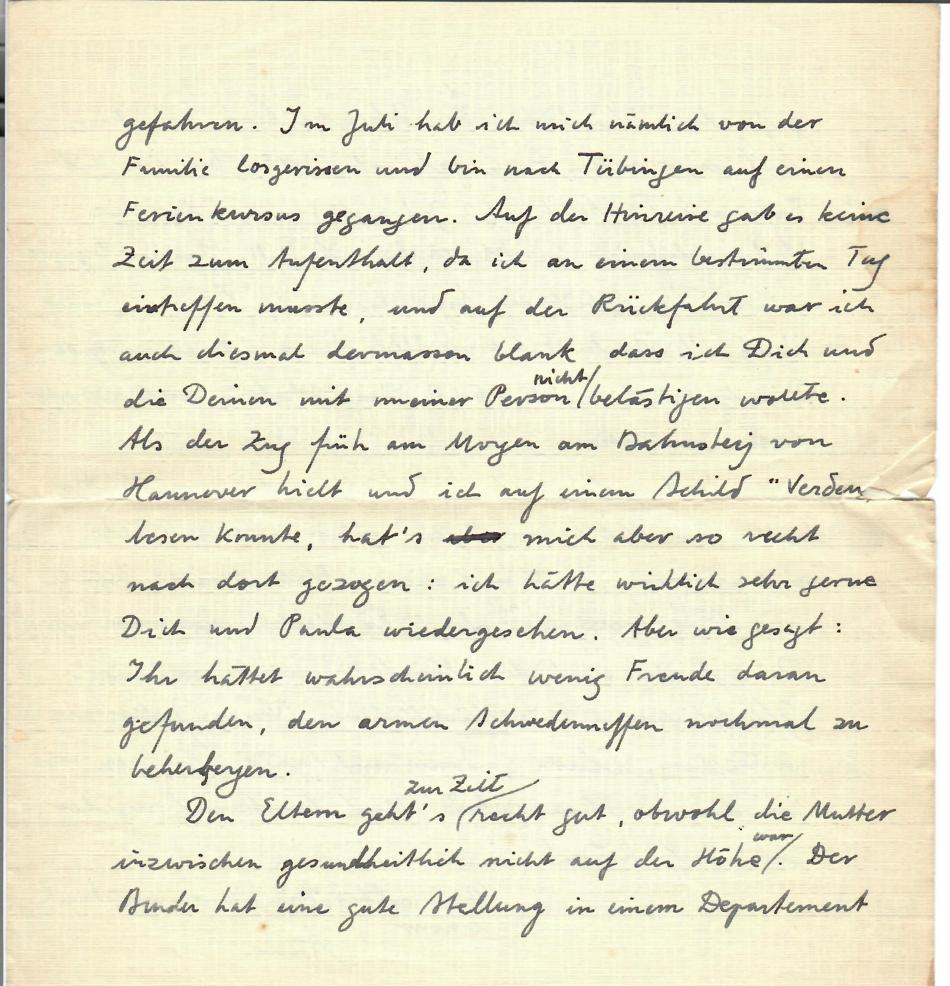 gefahren. Im Juli hab ich mich nämlich von der
Familie losgerissen und bin nach Tübingen auf einen
Ferienkursus gegangen. Auf der Hinreise gab es keine
Zeit zum Aufenthalt, da ich an einem bestimmten Tag
eintreffen musste, und auf der Rückfahrt war ich
auch diesmal dermassen blank dass ich Dich und
die Deinen mit meiner Person nicht belästigen wollte.
Als der Zug früh am Morgen am Bahnsteig von
Hannover hielt und ich auf einem Schild "Verden
lesen konnte, hat's aber mich aber so recht
nach dort gezogen: ich hätte wirklich sehr gerne
Dich und Paula wiedergesehen. Aber wie gesagt:
Ihr hättet wahrscheinlich wenig Freude daran
gefunden, den armen Schwedenneffen nochmal zu
beherbergen.
Den Eltern geht's zur Zeit recht gut, obwohl die Mutter
inzwischen gesundheitlich nicht auf der Höhe war. Der
Bruder hat eine gute Stellung in einem Departement